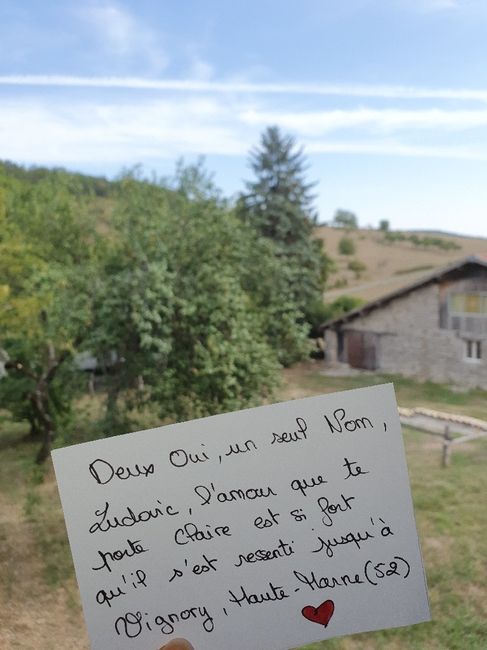 Deux Oui, un seul Nom,
Ludovic, l'amour que te
porte Claire est si fort
qu'il s'est ressenti jusqu'à
Vignory, Haute-Marne (52)